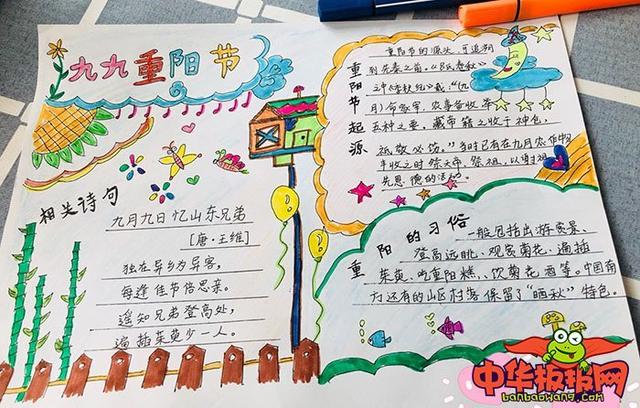 九九重阳节
相关诗句
九月九日忆山东兄弟
[唐·王维]
独在异乡为异客,
每逢佳节倍思亲。
遥知兄弟登高处,
遍插茱萸少一人。
重阳节起源
重阳节的源头,可追溯
到先秦之前。《吕氏春秋》
之中《季秋纪》载:“(九
月)命家宰,农事备收,举
五种之要。藏帝籍之收于神仓,
祗敬必饬。”当时已有在九月农作物
丰收之时祭天帝、祭祖,以谢
先恩德的活动。
重阳的习俗
一般包括出游赏景、
登高远眺、观赏菊花、遍插
茱萸、吃重阳糕、饮菊花酒等。中国南
方还有的山区村落保留了“晒秋”特色。
中华板报网
banbaowang.com